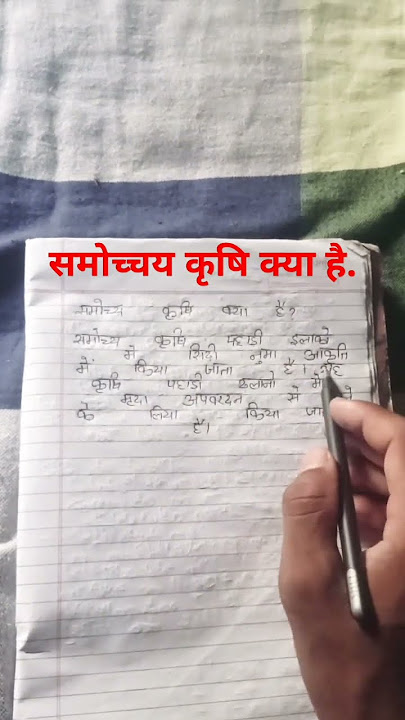 समोच्चय कृषि क्या है.
समोच्य कृषि क्या है?
समोच्य कृषि पहाडी इलाको
में सिढी नुमा आकृति
में किया जाता है। यह
कृषि पहाडी ढलानो में
मृदा अपवरदन से
के लिया किया जा
है।